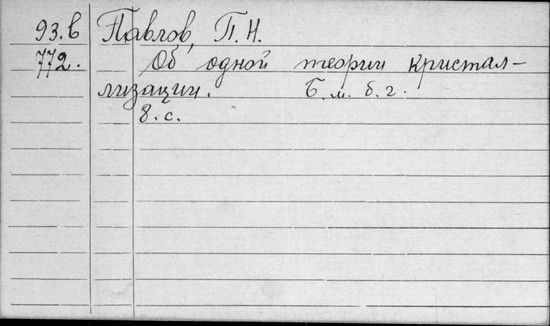 93.b Павлов, П. Н.
772. Об одной теории кристал-
лизации. Б. м. б. г.
8. с.